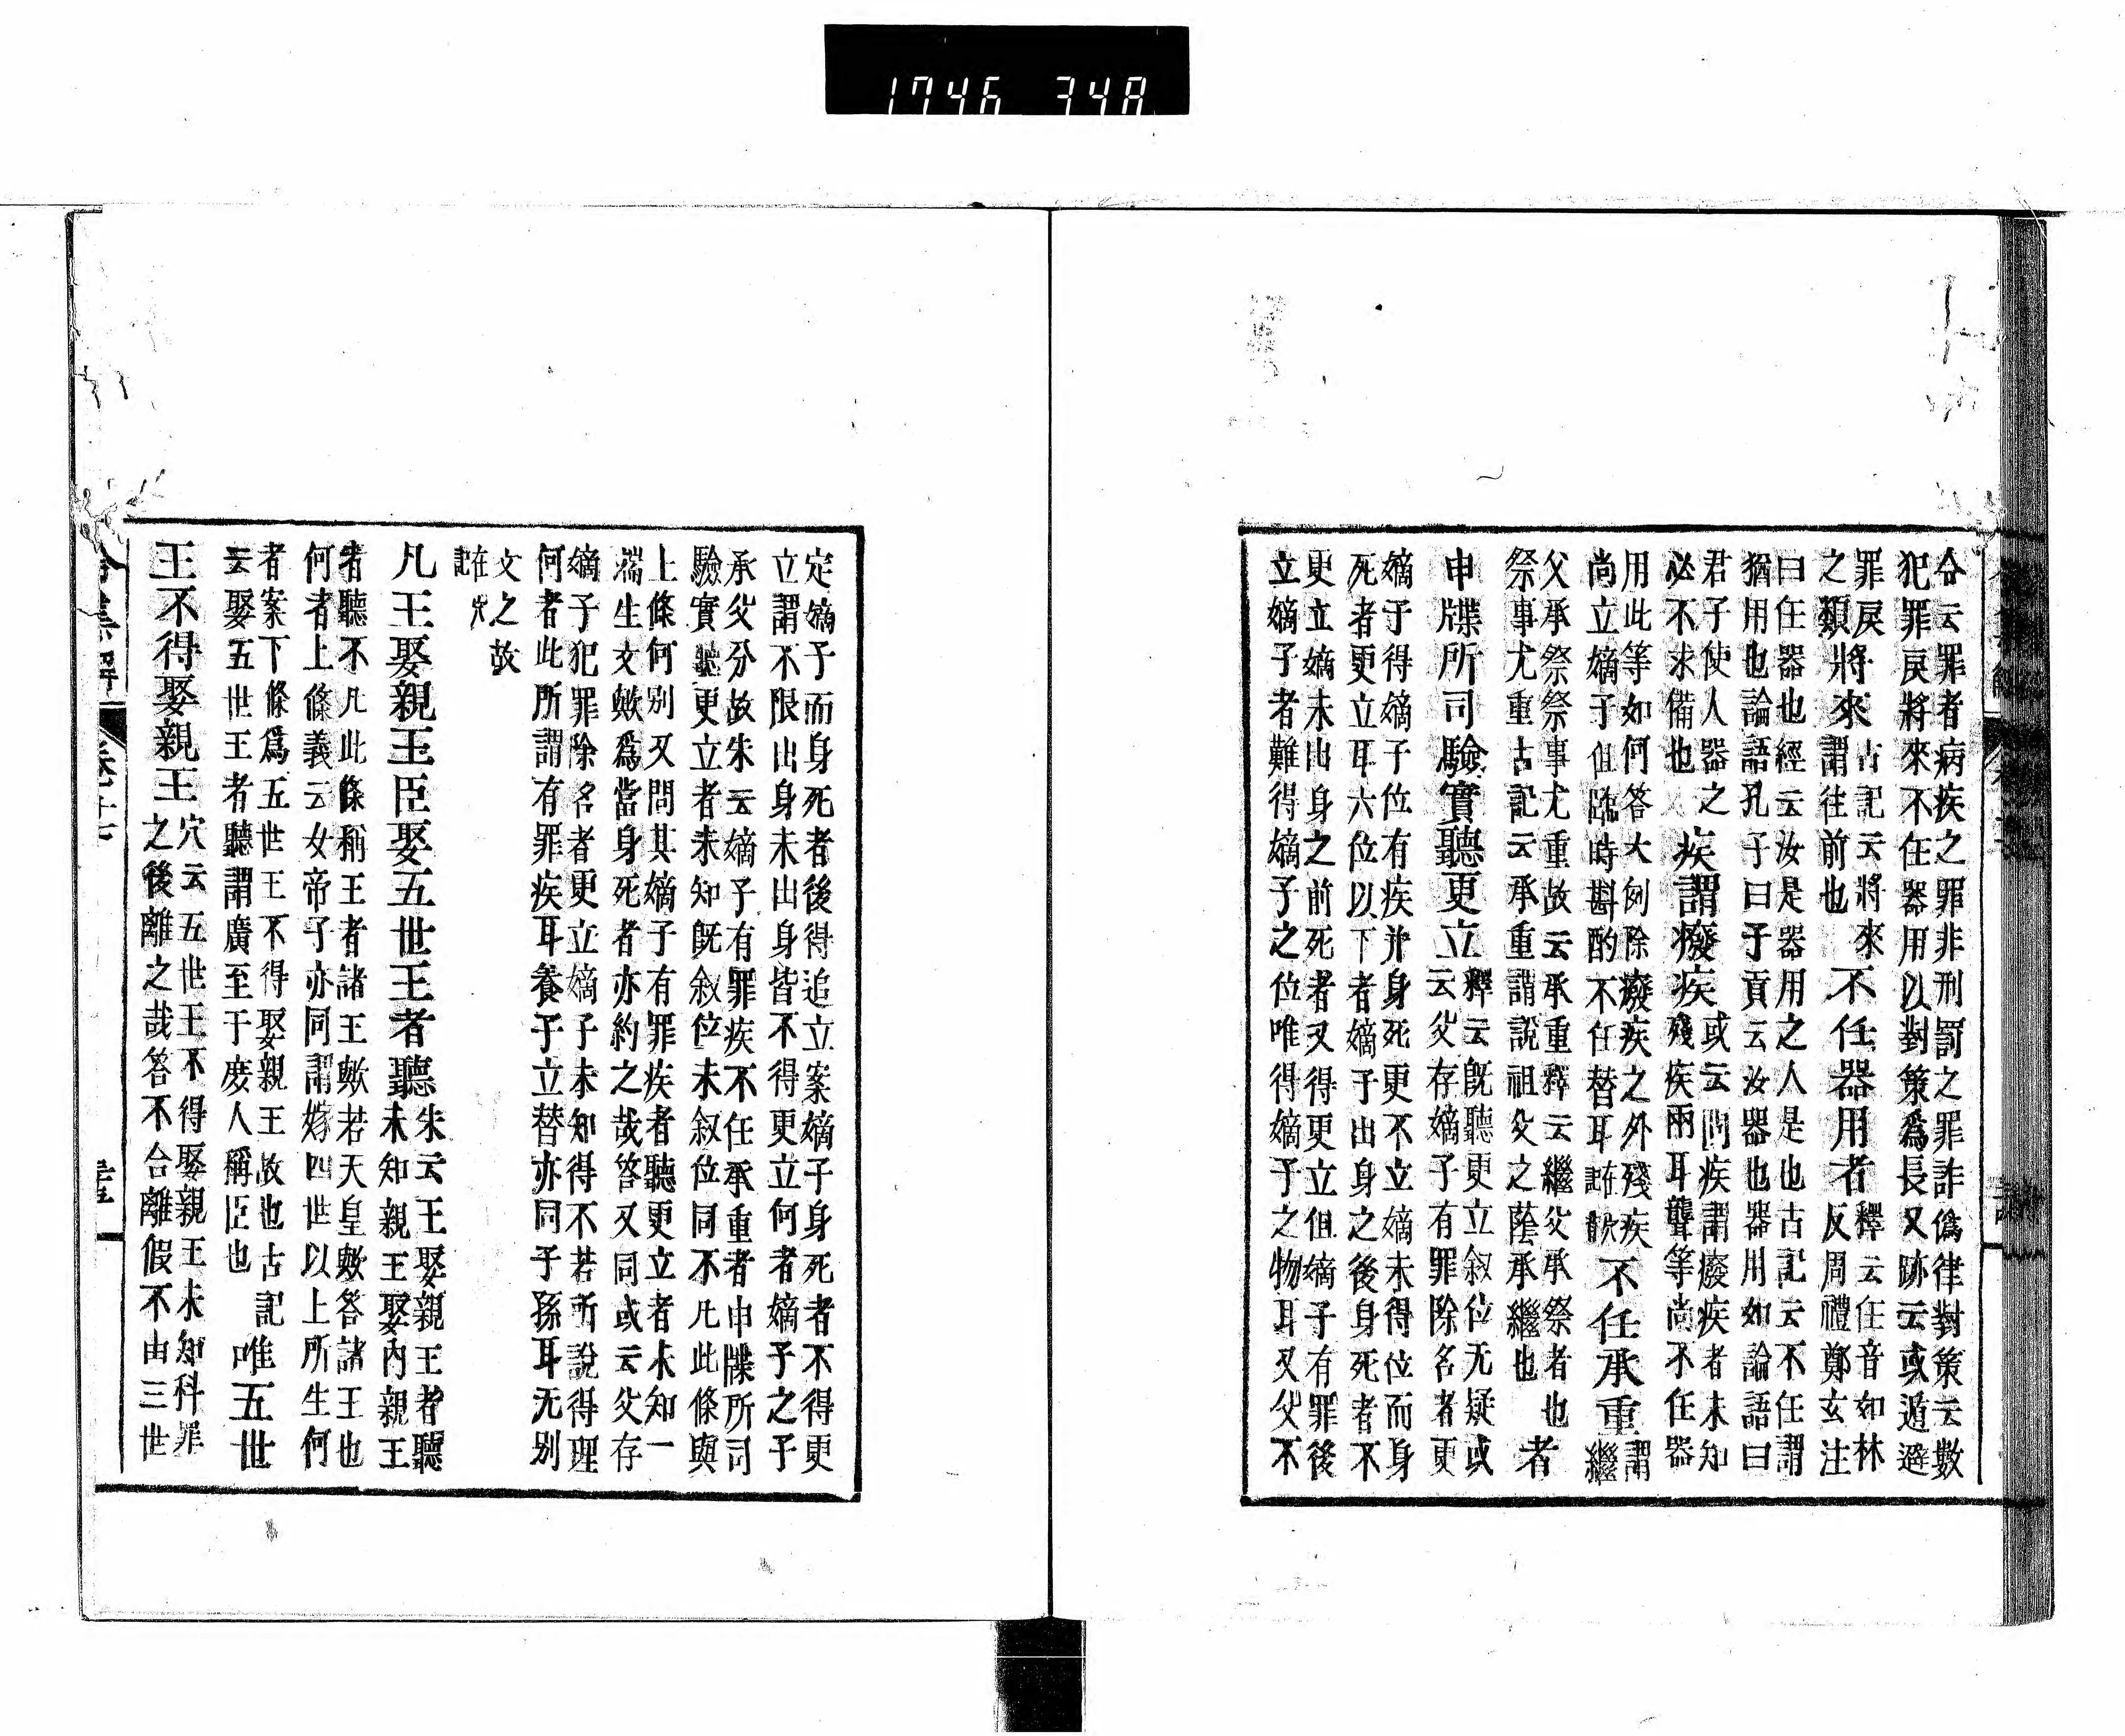 1746 348
合云罪者病疾之罪非刑罰之罪詐僞律對策云數
犯罪戻將來不任器用以對策爲長又跡云或遁避
罪戻將來古記云將來不任器用者釋云任音如林
之類將來謂往前也反周禮鄭玄注
曰任器也經云汝是器用之人是也古記云不任謂
猶用也論語孔子曰子貢云汝器也器用如論語曰
君子使人器之疾謂癈疾或云問疾謂癈疾者未知
必不求備也殘疾兩耳聾等尚不任器
用此等如何答大例除癈疾之外殘疾不任承重謂
尚立嫡子但臨時斟酌不任替耳繼
父承祭祭事尤重故云承重釋云繼父承祭者也者
祭事尤重古記云承重謂説祖父之蔭承繼也
申牒所司驗實聽更立釋云既聽更立叙位无疑或
云父存嫡子有罪除名者更
嫡子得嫡子位有疾并身死更不立嫡未得位而身
死者更立耳六位以下者嫡子出身之後身死者不
更立嫡未出身之前死者又得更立但嫡子有罪後
立嫡子者難得嫡子之位唯得嫡子之物耳又父不
定嫡子而身死者後得追立案嫡子身死者不得更
立謂不限出身未出身皆不得更立何者嫡子之子
承父分故朱云嫡子有罪疾不任承重者申牒所司
驗實聽更立者未知既叙位未叙位同不凡此條與
上條何別又問其嫡子有罪疾者聽更立者未知一
端生文歟爲當身死者亦約之哉答又同或云父存
嫡子犯罪除名者更立嫡子未知得不若所説得理
何者此所謂有罪疾耳養子立替亦同子孫耳无別
文之故
在穴
記
凡王娶親王臣娶五世王者聽朱云王娶親王者聽
未知親王娶内親王
者聽不凡此條稱王者諸王歟若天皇歟答諸王也
何者上條義云女帝子亦同謂嫁四世以上所生何
者案下條爲五世王不得娶親王故也古記唯五世
云娶五世王者聽謂廣至于庻人稱臣也
王不得娶親王穴云五世王不得娶親王未知科罪
之後離之哉答不合離假不由三世
令集解 卷十七